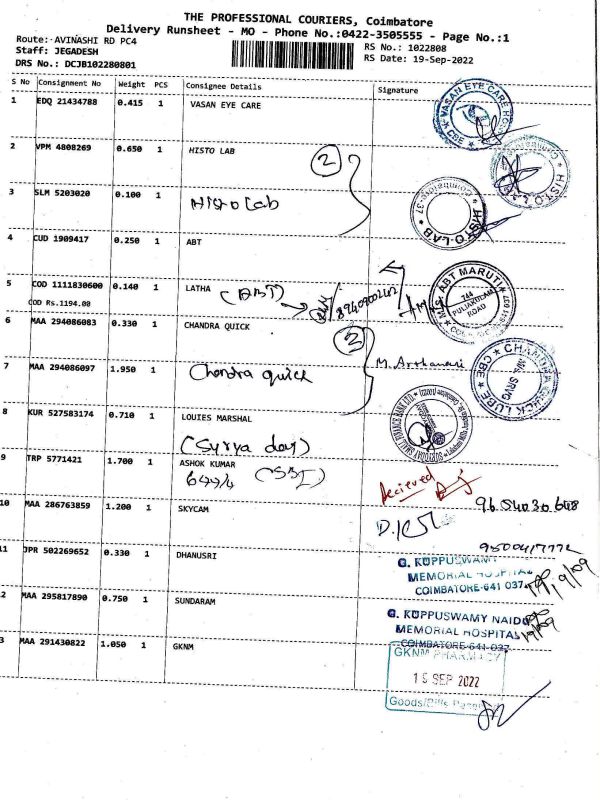 THE PROFESSIONAL COURIERS, Coimbatore
Delivery Runsheet - MO - Phone No.:0422-3505555 - Page No.:1
Route: AVINASHI RD PC4
RS No.: 1022808
Staff: JEGADESH
RS Date: 19-Sep-2022
DRS No.: DCJB102280801
S No Consignment No Weight PCS Consignee Details Signature
1 EDQ 21434788 0.415 1 VASAN EYE CARE
VASAN EYE CARE
CBE
2 VPM 4808269 0.650 1 HISTO LAB
2
HISTO-LAB
3 SLM 5203020 0.100 1
Histo Lab
HISTO-LAB
Coimbatore-37
4 CUD 1909417 0.250 1 ABT
5 COD 1111830600 0.140 1 LATHA (ABT)
COD Rs.1194.00
M/s. ABT MARUTI
744
PULIAKULAM
ROAD
6 MAA 294086083 0.330 1 CHANDRA QUICK
2
7 MAA 294086097 1.950 1
Chandra quick
CHANDRA QUICK LUBE
CBE
8 KUR 527583174 0.710 1 LOUIES MARSHAL
(Surya day)
9 TRP 5771421 1.700 1 ASHOK KUMAR
(SBI)
Recieved
10 MAA 286763859 1.200 1 SKYCAM
11 JPR 502269652 0.330 1 DHANUSRI
G. KUPPUSWAMY
MEMORIAL HOSPITAL
COIMBATORE-641 037
12 MAA 295817890 0.750 1 SUNDARAM
G. KUPPUSWAMY NAIDU
MEMORIAL HOSPITAL
COIMBATORE-641-037
13 MAA 291430822 1.050 1 GKNM
GKNM PHARMACY
19 SEP 2022
Goods/Bills